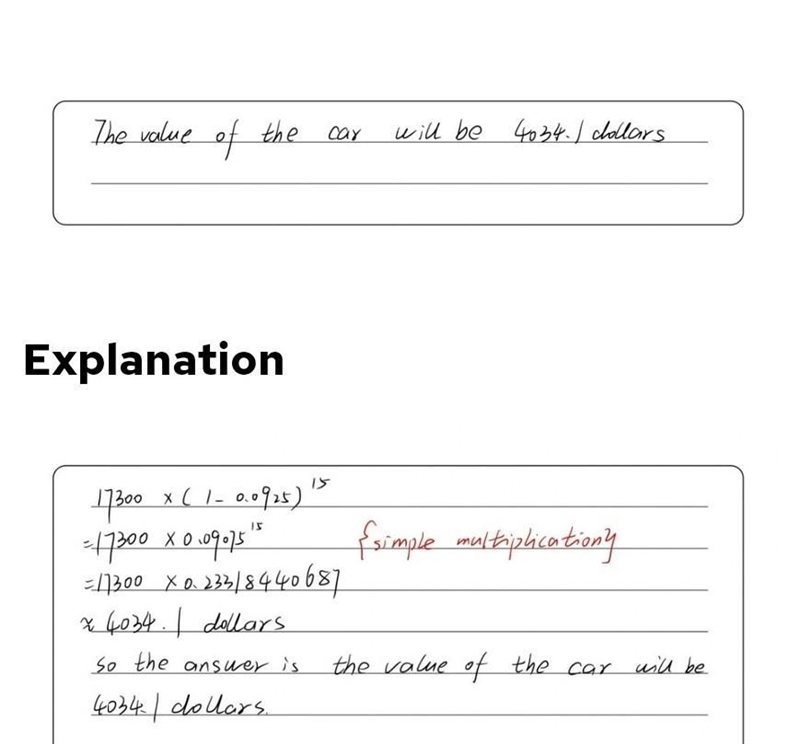 The value of the car will be 4034.1 dollars
Explanation
17300 x ( 1 - 0.0925)^15
=17300 x 0.09075^15 {simple multiplication}
=17300 x 0.23318440687
≈ 4034.1 dollars
so the answer is the value of the car will be
4034.1 dollars.